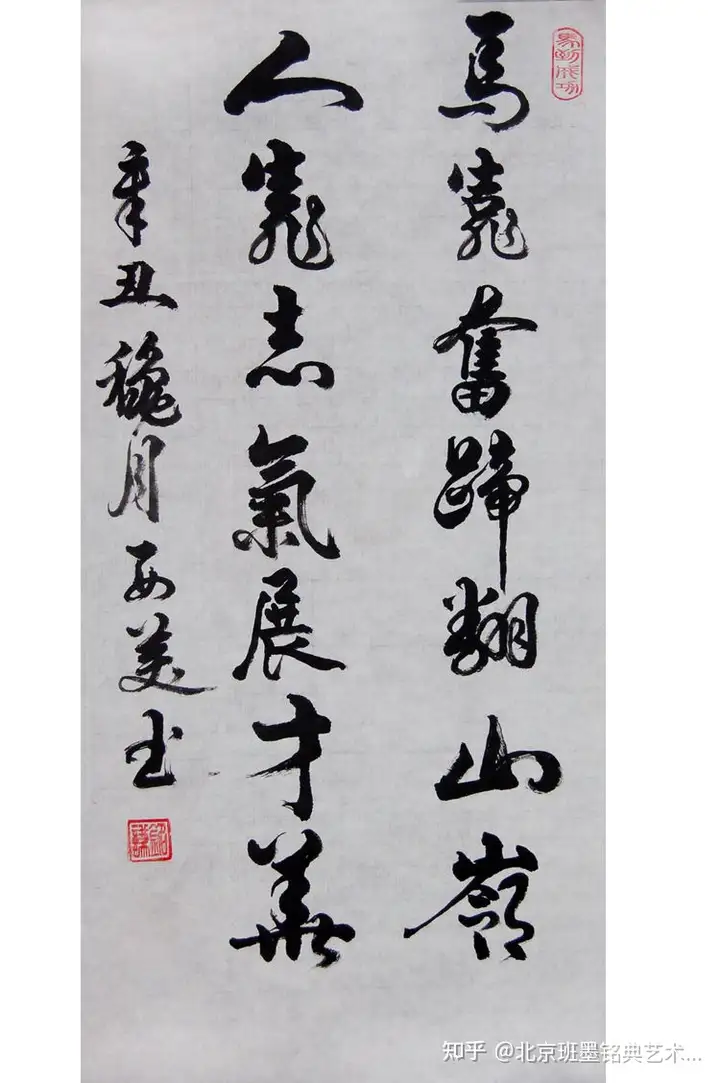 馬到成功
馬靠奮蹄翻山嶺
人靠志氣展才華
辛丑穐月美书
知乎 @北京班墨铭典艺术...